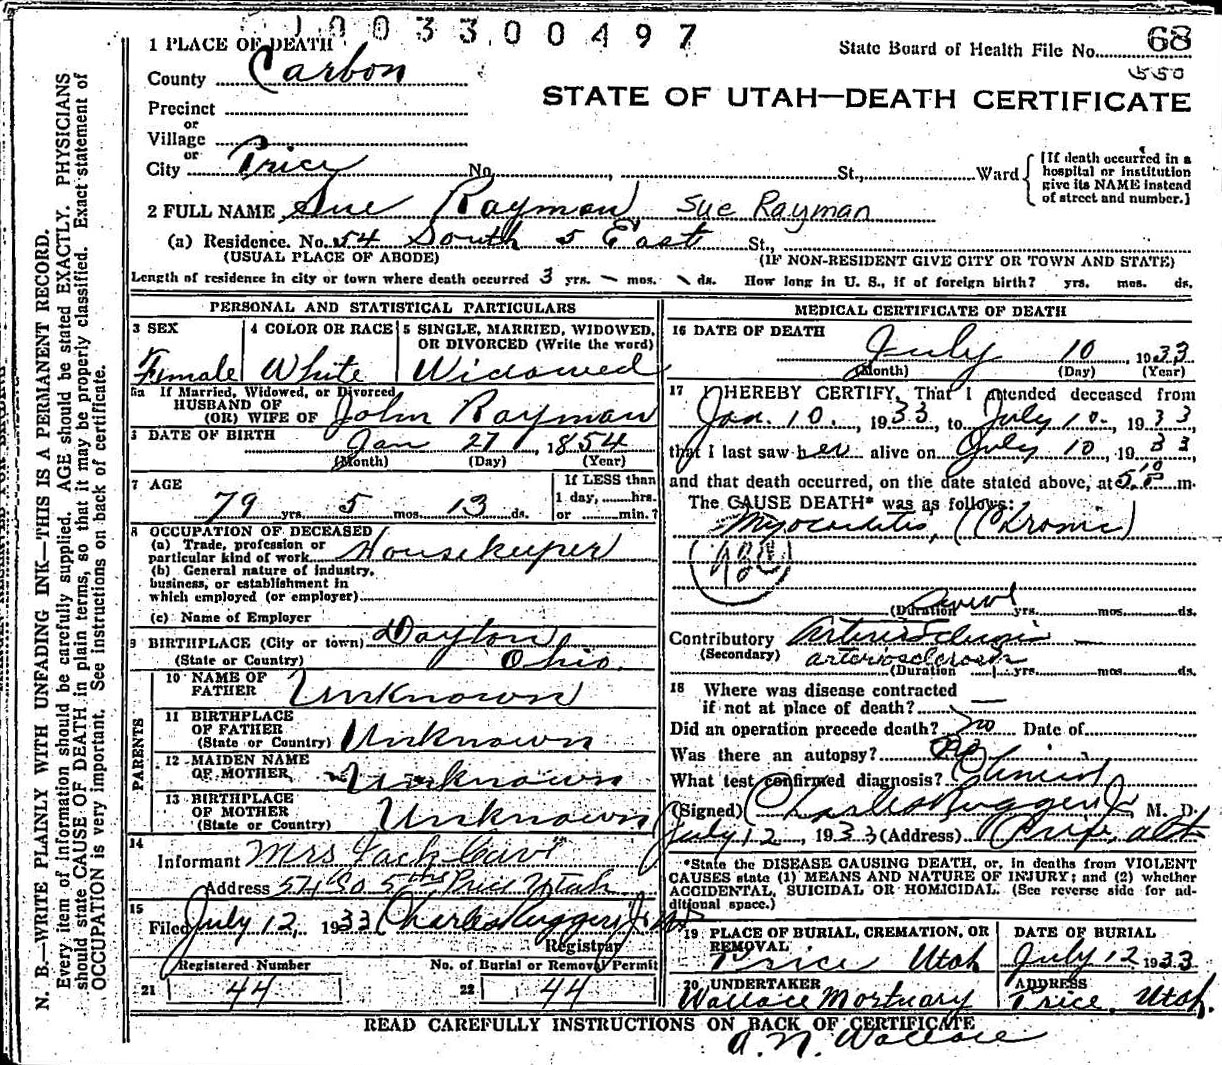 1003300497
1 PLACE OF DEATH
State Board of Health File No. 68
550
County Carbon
STATE OF UTAH—DEATH CERTIFICATE
Precinct
or
Village
or
City Price No. , St., Ward
[If death occurred in a
hospital or institution
give its NAME instead
of street and number.]
2 FULL NAME Sue Rayman Sue Rayman
(a) Residence. No. 54 South 5 East St.,
(USUAL PLACE OF ABODE) (IF NON-RESIDENT GIVE CITY OR TOWN AND STATE)
Length of residence in city or town where death occurred 3 yrs. — mos. ds. How long in U. S., if of foreign birth? yrs. mos. ds.
PERSONAL AND STATISTICAL PARTICULARS
3 SEX
Female
4 COLOR OR RACE
White
5 SINGLE, MARRIED, WIDOWED,
OR DIVORCED (Write the word)
Widowed
5a If Married, Widowed, or Divorced
HUSBAND OF
(OR) WIFE OF John Rayman
6 DATE OF BIRTH Jan 27, 1854
(Month) (Day) (Year)
7 AGE
79 yrs. 5 mos. 13 ds.
If LESS than
1 day, hrs.
or min.?
8 OCCUPATION OF DECEASED
(a) Trade, profession or
particular kind of work Housekeeper
(b) General nature of industry,
business, or establishment in
which employed (or employer)
(c) Name of Employer
9 BIRTHPLACE (City or town) Dayton
(State or Country) Ohio.
PARENTS
10 NAME OF
FATHER Unknown
11 BIRTHPLACE
OF FATHER
(State or Country) Unknown
12 MAIDEN NAME
OF MOTHER Unknown
13 BIRTHPLACE
OF MOTHER
(State or Country) Unknown
14
Informant Mrs Jack
Address 54 So 5th Price Utah
15
Filed July 12, 1933 Charles Ruggeri Jr MD
Registrar
Registered Number
No. of Burial or Removal Permit
21 44
22 44
MEDICAL CERTIFICATE OF DEATH
16 DATE OF DEATH
July 10, 1933
(Month) (Day) (Year)
17 I HEREBY CERTIFY, That I attended deceased from
Jan. 10., 1933, to July 10., 1933,
that I last saw her alive on July 10, 1933,
and that death occurred, on the date stated above, at 5:10 P. m.
The CAUSE DEATH* was as follows:
Myocarditis, (Chronic)
(Duration yrs. mos. ds.
Contributory Arteriosclerosis
(Secondary) arteriosclerosis
(Duration yrs. mos. ds.
18 Where was disease contracted
if not at place of death? —
Did an operation precede death? no Date of
Was there an autopsy? no
What test confirmed diagnosis? Clinical
(Signed) Charles Ruggeri Jr M. D.
July 12, 1933 (Address) Price, Utah
*State the DISEASE CAUSING DEATH, or, in deaths from VIOLENT
CAUSES state (1) MEANS AND NATURE OF INJURY; and (2) whether
ACCIDENTAL, SUICIDAL OR HOMICIDAL. (See reverse side for ad-
ditional space.)
19 PLACE OF BURIAL, CREMATION, OR
REMOVAL
Price Utah
DATE OF BURIAL
July 12 1933
20 UNDERTAKER
Wallace Mortuary
ADDRESS
Price, Utah.
READ CAREFULLY INSTRUCTIONS ON BACK OF CERTIFICATE
A. N. Wallace
N. B.—WRITE PLAINLY WITH UNFADING INK—THIS IS A PERMANENT RECORD.
Every item of information should be carefully supplied. AGE should be stated EXACTLY. PHYSICIANS
should state CAUSE OF DEATH in plain terms, so that it may be properly classified. Exact statement of
OCCUPATION is very important. See instructions on back of certificate.